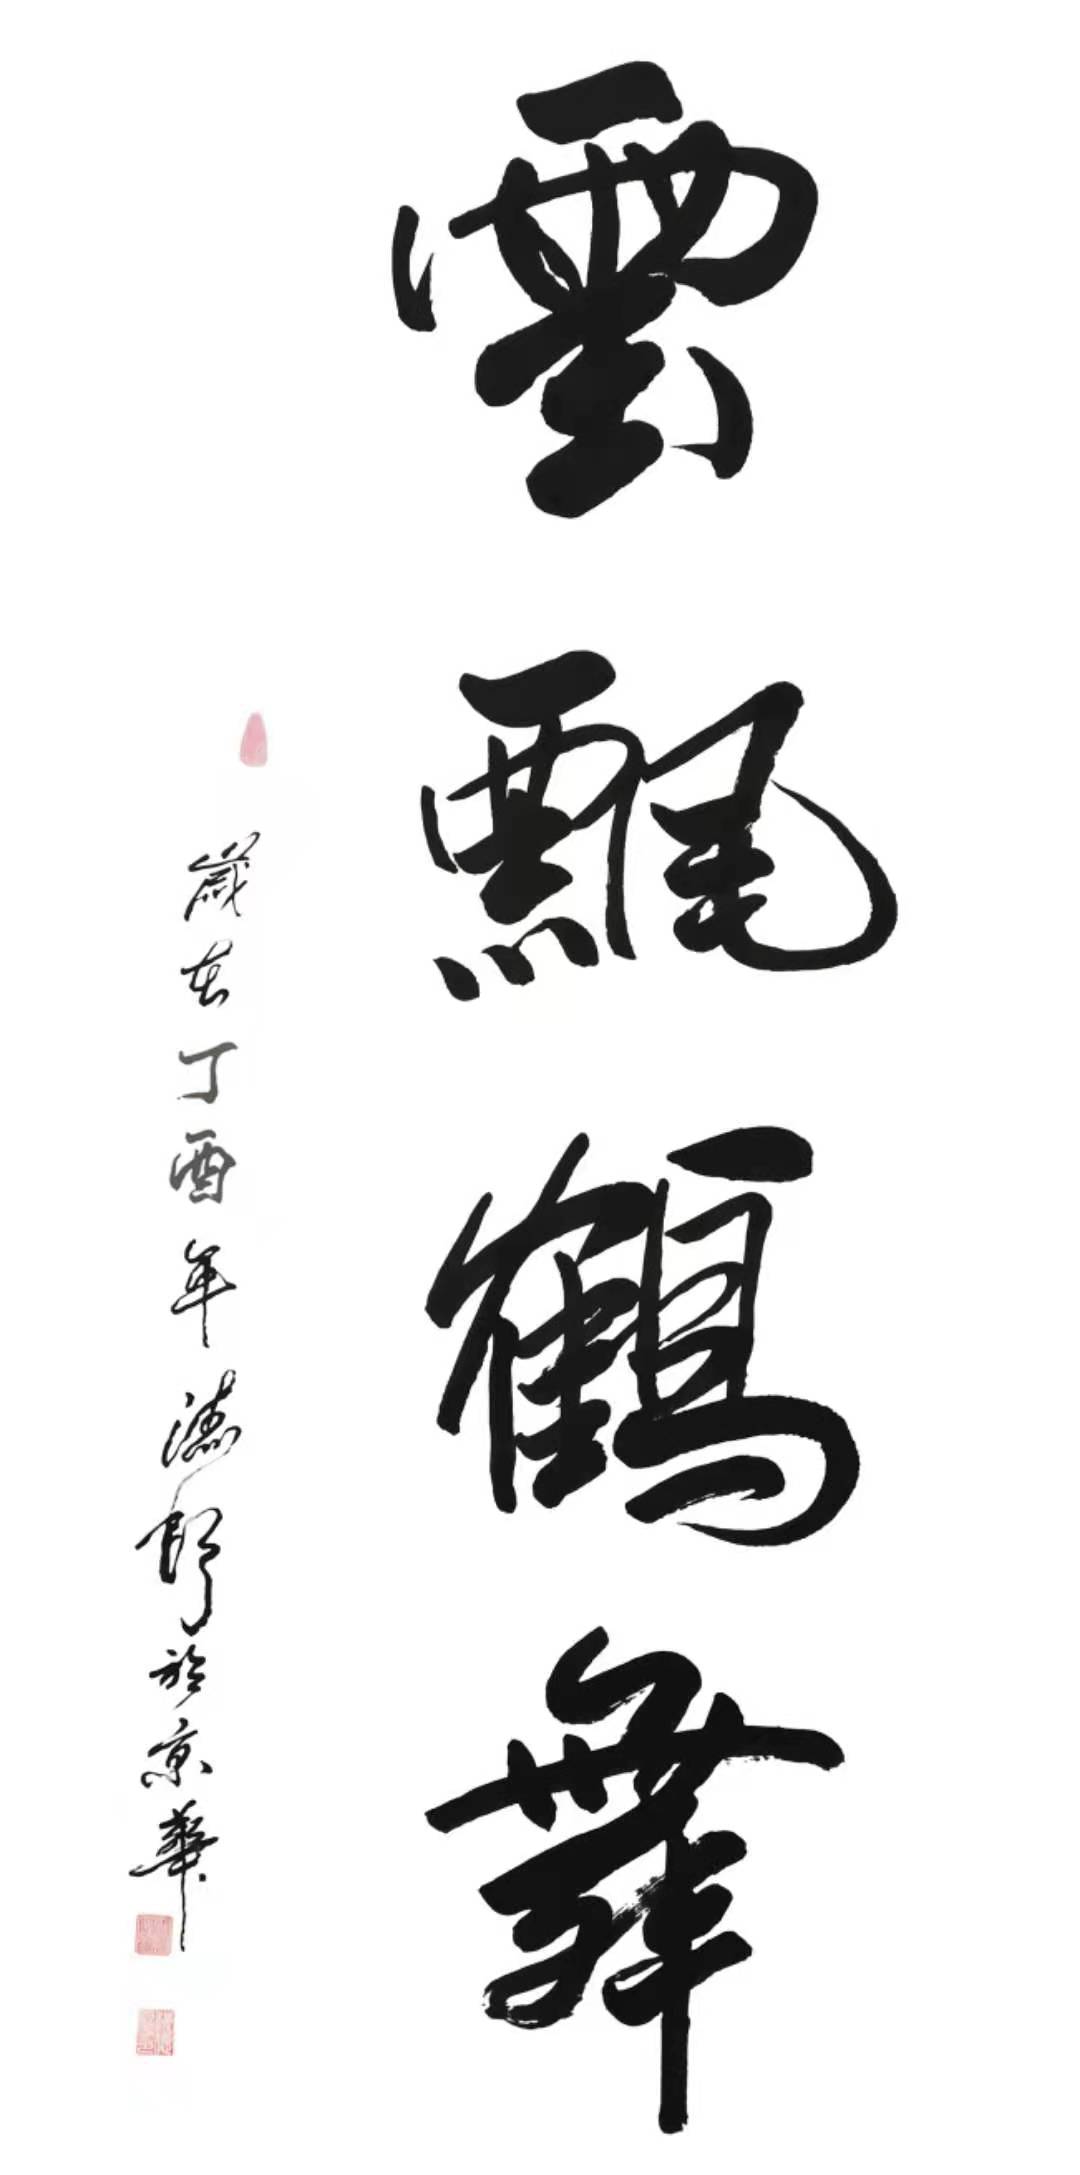 雲飄鶴舞
歲在丁酉年德郎於京華